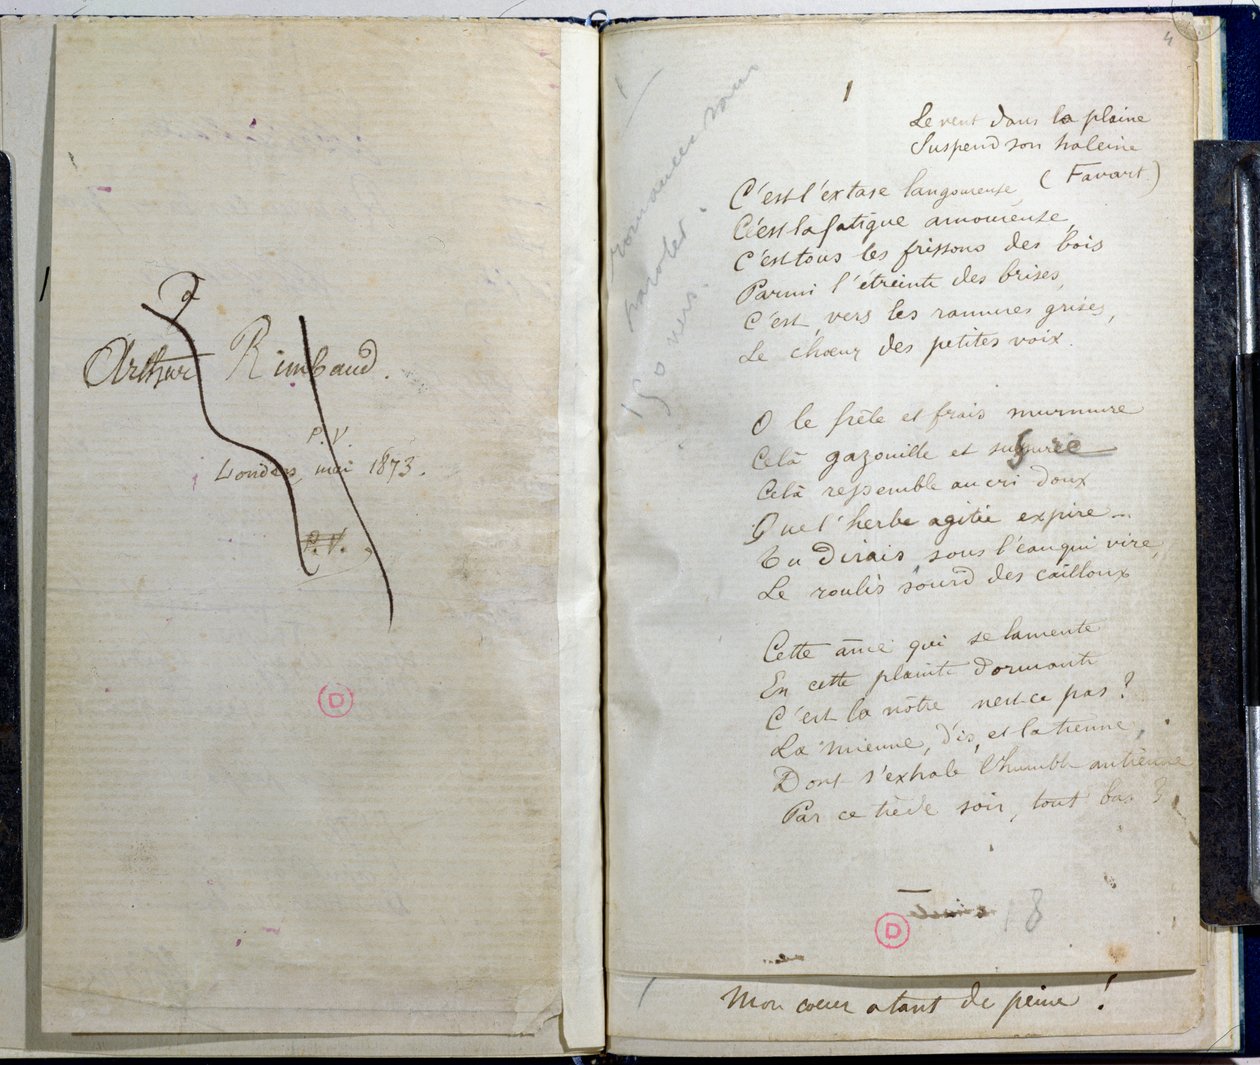 à
Arthur Rimbaud.
P. V.
Londres, mai 1873.
P. V.
D
4
1
romances sans
paroles.
150 vers.
Le vent dans la plaine
Suspend son haleine
(Favart)
C'est l'extase langoureuse,
C'est la fatigue amoureuse,
C'est tous les frissons des bois
Parmi l'étreinte des brises,
C'est, vers les ramures grises,
Le chœur des petites voix.
O le frêle et frais murmure
Celà gazouille et susurre
Celà ressemble au cri doux
Que l'herbe agitée expire...
Tu dirais, sous l'eau qui vire,
Le roulis sourd des cailloux
Cette âme qui se lamente
En cette plainte dormante
C'est la nôtre n'est-ce pas ?
La mienne, dis, et la tienne,
Dont s'exhale l'humble antienne
Par ce tiède soir, tout bas ?
18
D
Mon coeur a tant de peine !